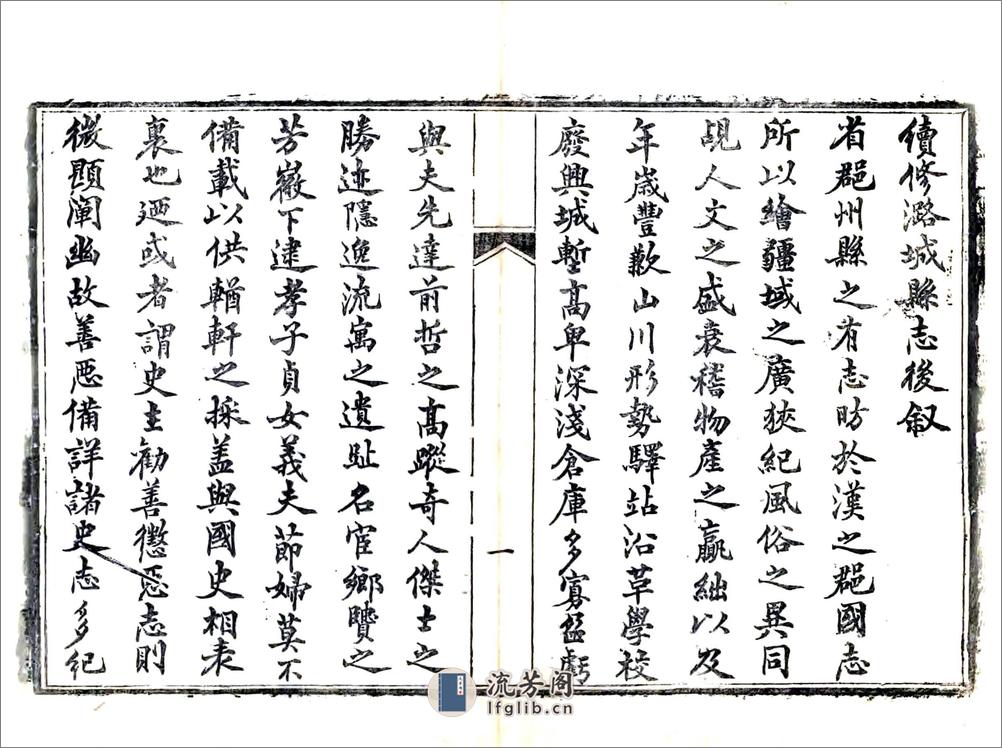 續修潞城縣志後叙
省郡州縣之有志昉於漢之郡國志
所以繪疆域之廣狹紀風俗之異同
覘人文之盛衰稽物產之贏絀以及
年歲豐歉山川形勢驛站沿革學校
廢興城塹高卑深淺倉庫多寡盈虧
一
與夫先達前哲之高蹤奇人傑士之
勝迹隱逸流寓之遺趾名宦鄉賢之
芳徽下逮孝子貞女義夫節婦莫不
備載以供輶軒之採盖與國史相表
裏也廼或者謂史主勸善懲惡志則
微顯闡幽故善惡備詳諸史志多紀
流芳阁
lfglib.cn